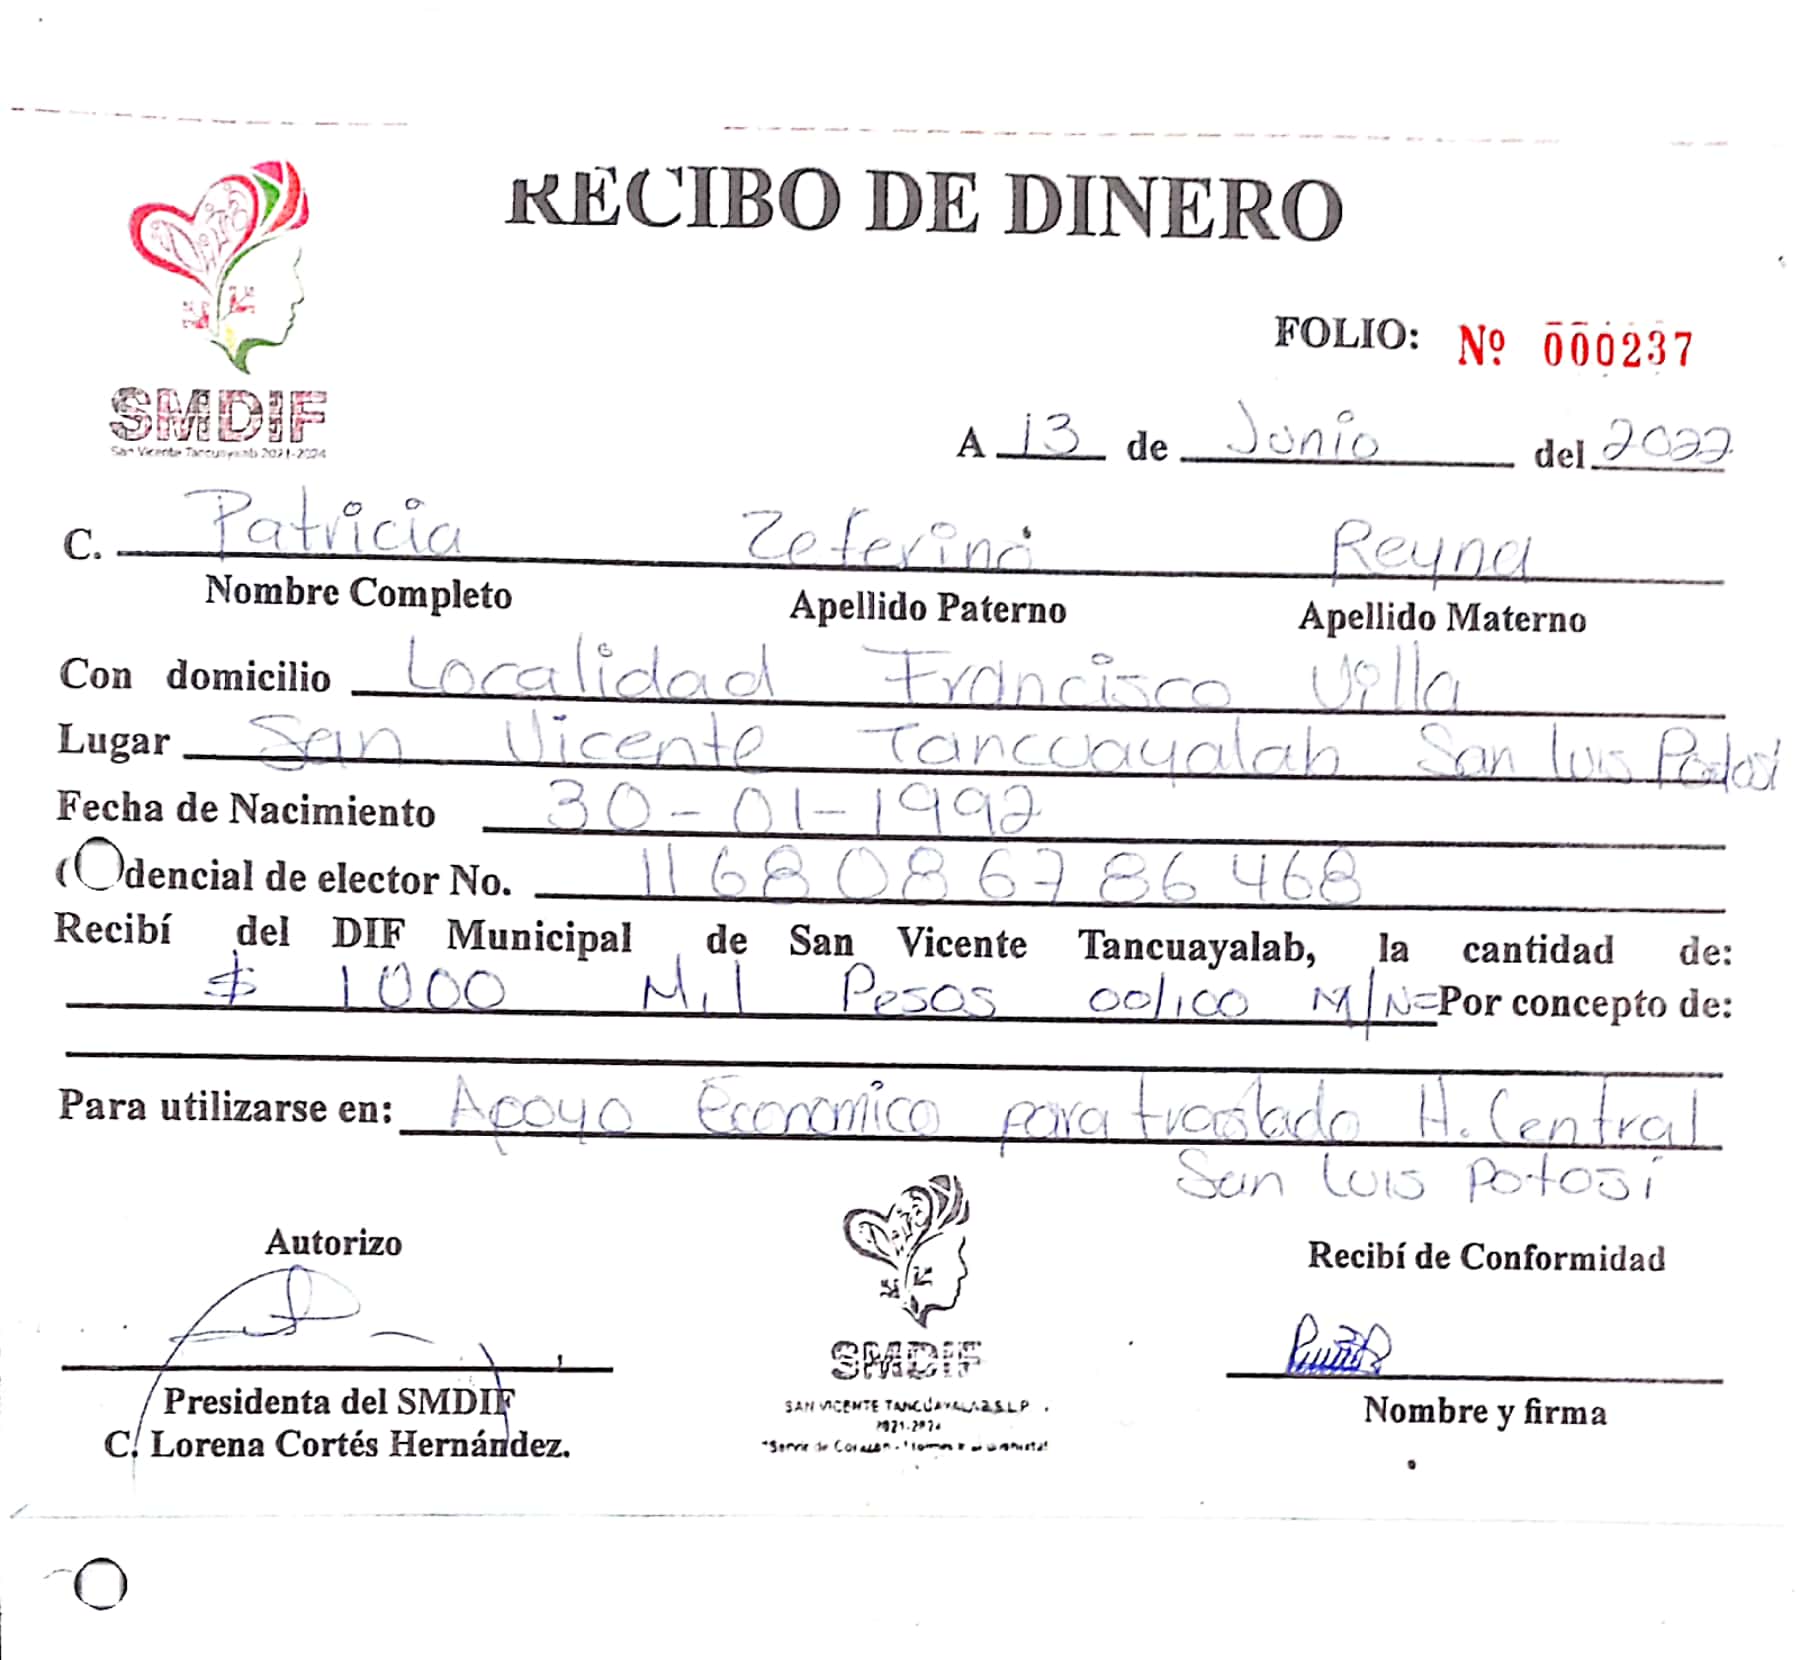 RECIBO DE DINERO
FOLIO: Nº 000237
SMDIF
San Vicente Tancuayalab 2021-2024
A 13 de Junio del 2022
C. Patricia Zeferino Reyna
Nombre Completo Apellido Paterno Apellido Materno
Con domicilio Localidad Francisco Villa
Lugar San Vicente Tancuayalab San Luis Potosi
Fecha de Nacimiento 30-01-1992
dencial de elector No. 1168086786468
Recibí del DIF Municipal de San Vicente Tancuayalab, la cantidad de:
$ 1000 Mil Pesos 00/100 M/N= Por concepto de:
Para utilizarse en: Apoyo Economico para traslado H. Central
San Luis Potosi
Autorizo
Recibí de Conformidad
SMDIF
SAN VICENTE TANCUAYALAB S.L.P.
2021-2024
"Servir de Corazón
Presidenta del SMDIF
C. Lorena Cortés Hernández.
Nombre y firma